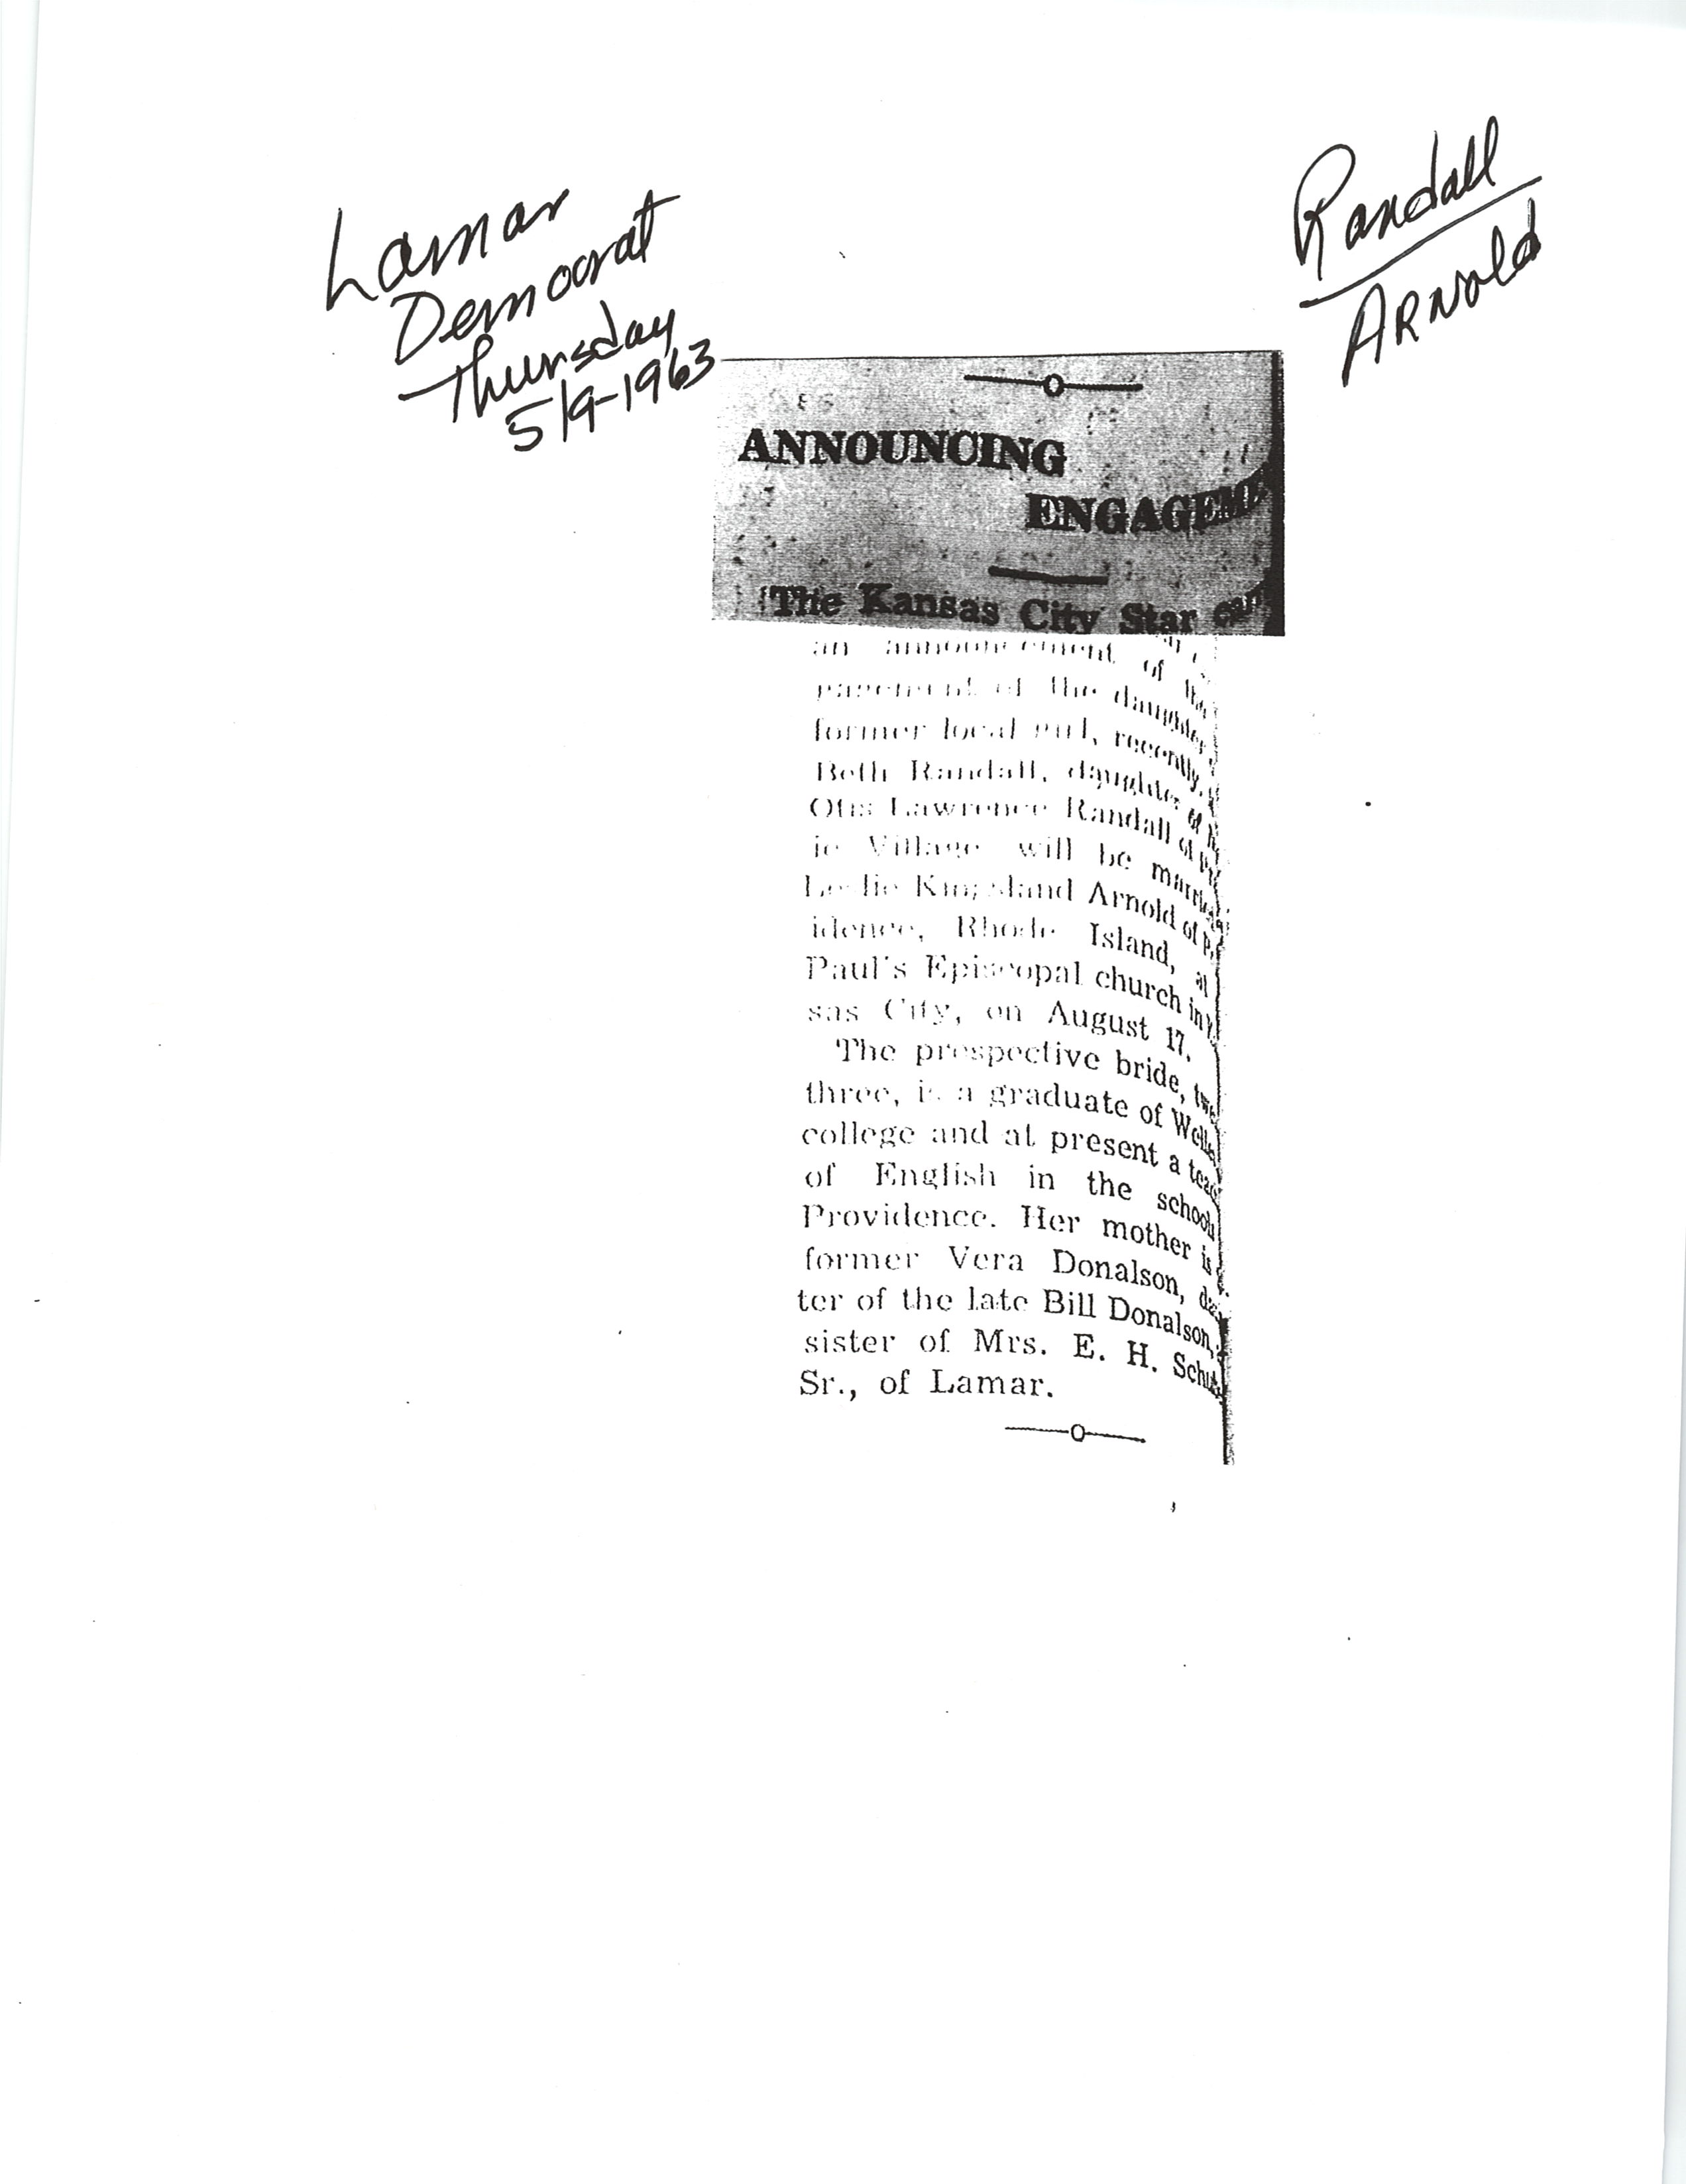 Lamar
Democrat
Thursday
5/9-1963
Randall
Arnold
ANNOUNCING
ENGAGEME
The Kansas City Star
an announcement of
of the daughter
former local girl, recently.
Beth Randall, daughter of
Otis Lawrence Randall of
ie Village will be
Leslie Kingsland Arnold of
idence, Rhode Island, at
Paul's Episcopal church in
sas City, on August 17.
The prospective bride,
three, is a graduate of
college and at present a
of English in the
Providence. Her mother is
former Vera Donalson,
ter of the late Bill Donalson,
sister of Mrs. E. H.
Sr., of Lamar.